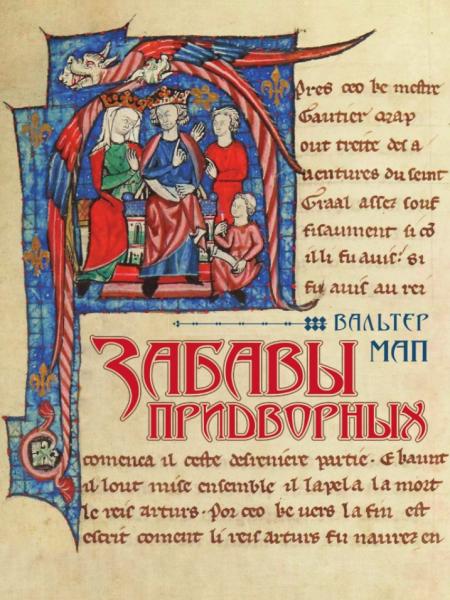 Apres ceo ke mestre
Gautier Map
out treite des a
uentures du seint
Graal assez souf
fisaument si cō
il li fu auis: si
fu auis au rei
ВАЛЬТЕР
МАП
ЗАБАВЫ
ПРИДВОРНЫХ
comenca il ceste desreniere partie. E kaunt
il lout mise ensemble il lapela la mort
le reis arturs. Por ceo ke uers la fin est
escrit coment li reis arturs fu naurez en